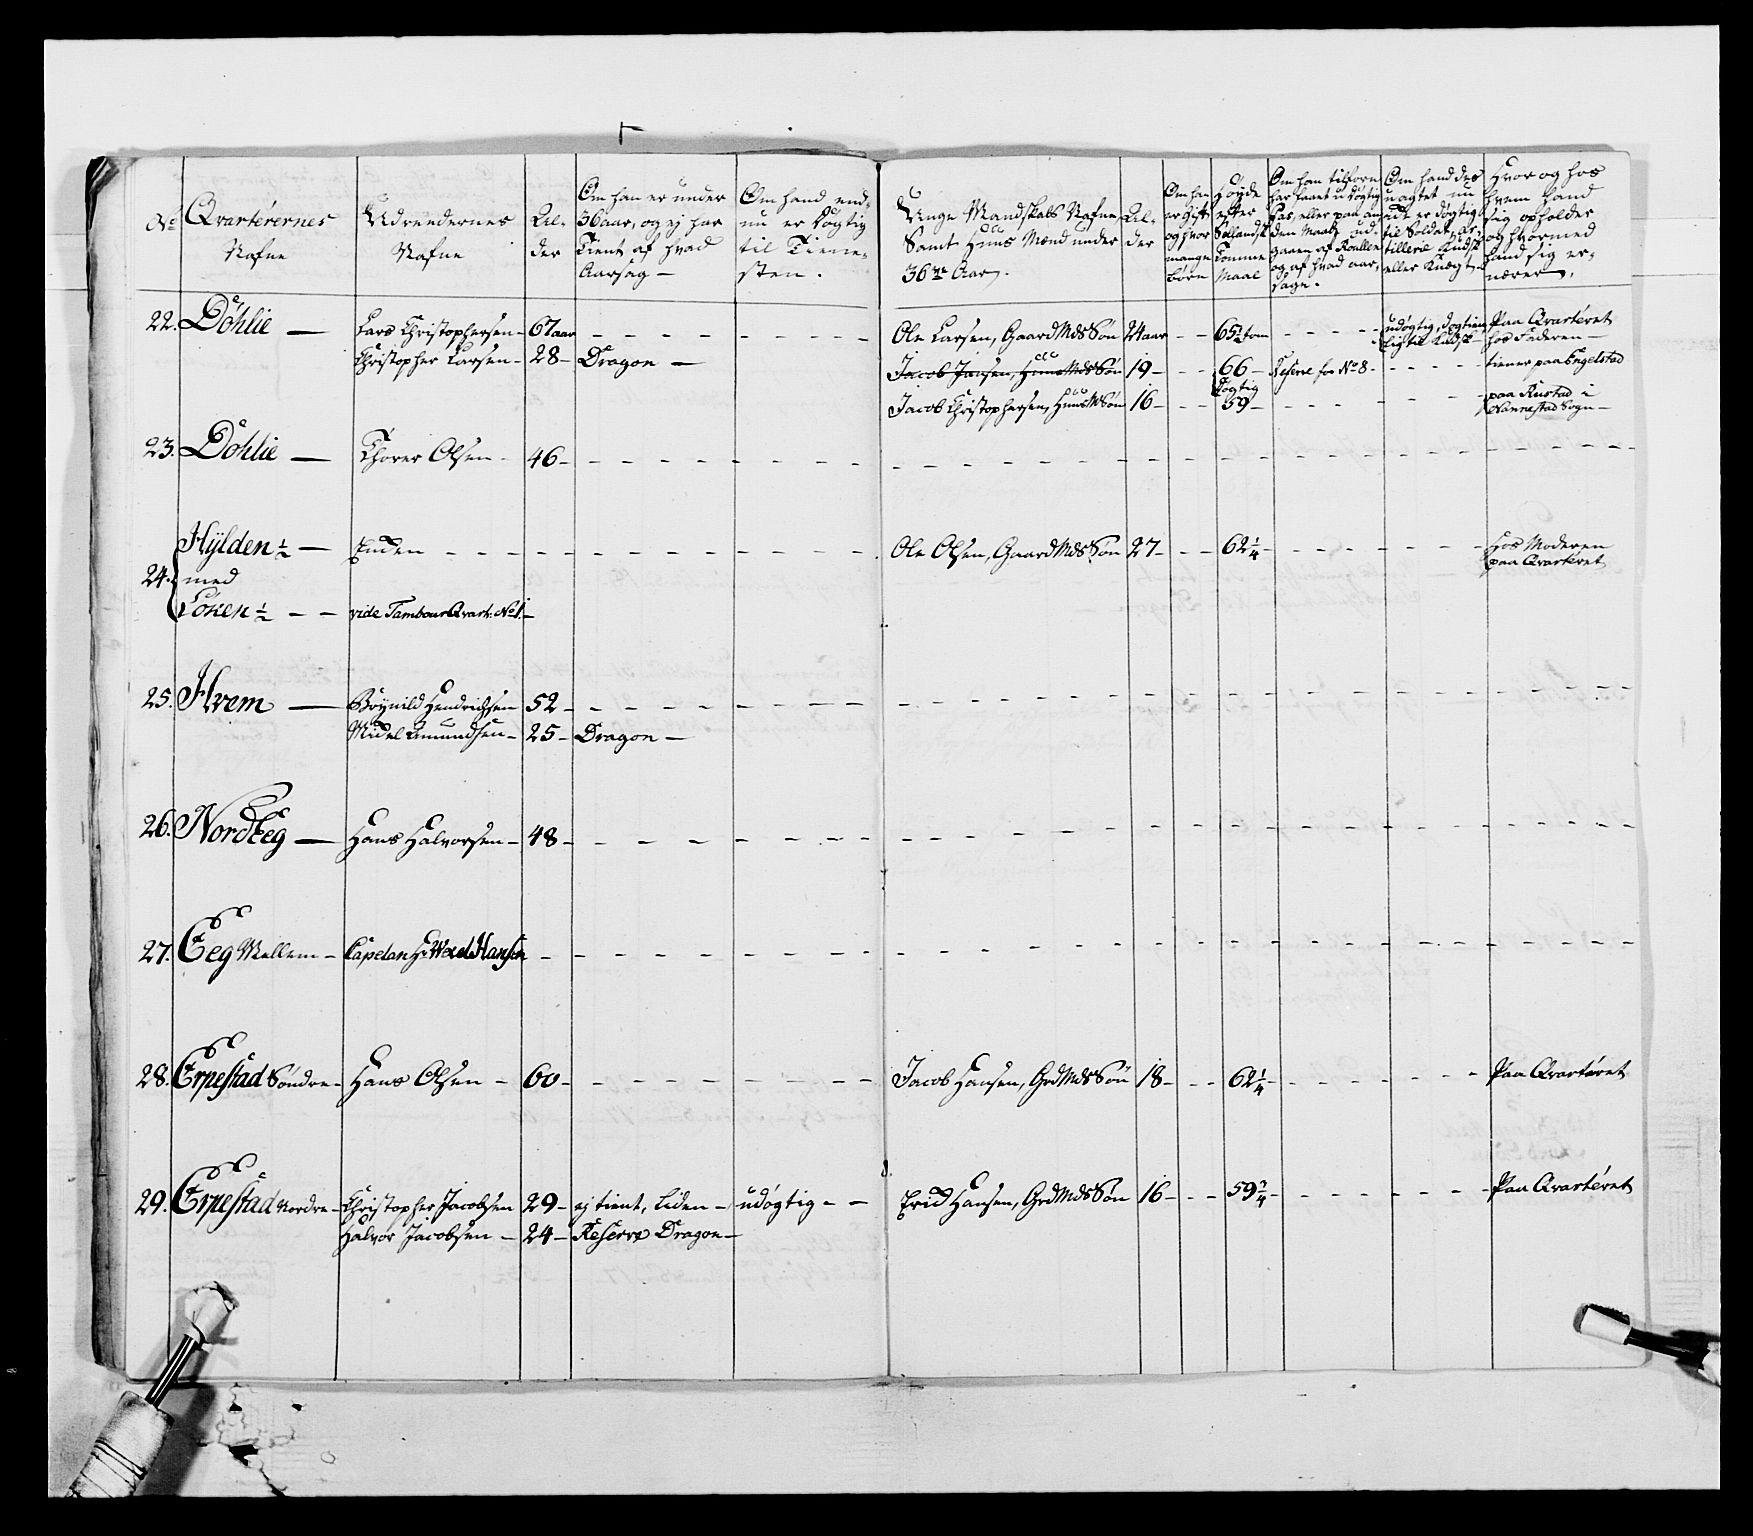 No Qvarterernes Nafne
Udreedernes Nafne
Al-
der
Om han er under
36 aar, og ej har
Tient af hvad
Aarsag —
Om hand end-
nu er Døgtig
til Tiene-
sten.
Unge Mandskabs Nafne
Samt Huus Mænd under
36te Aar.
Al-
der
Om han
er Gift
og hvor
mange
börn
Höyde
efter
Sellandsk
Tomme
Maal
Om han tilforn
har været udögtig
Cas. eller paa an-
den Maade ud-
gaaen af Roullen
og af hvad aar-
sage.
Om hand des
uagtet nu
ej er dögtig
til Soldat, Ar-
tillerie Kudsk
eller Knægt
Hvor og hos
hvem hand
sig opholder
og hvormed
hand sig er-
nærer.
22. Döhlie — Lars Christophersen - 67 aar - - - - - Ole Larsen, Gaard Mds Sön 24 aar - - 65½ tom - - - - udögtig, dog tienlig til Kudsk Paa Qvarteret hos Faderen —
Christopher Larsen - 28 - Dragon — Jacob Jansen, Huus Mds Sön 19 - - - 66 - Reserve for No 8 - - - - - tiener paa Engelstad
Jacob Christophersen, Huus M Sön 16 - - - Dögtig 59 - - - - - paa Rustad i Nannestad Sogn —
23. Döhlie — Thorer Olsen - 46 - - - - -
24. Hÿlden ½ — Enken - - - - Ole Olsen, Gaard Mds Sön 27 - - - 62¼ - - - - - Hos Moderen paa Qvarteret
med
Löken ½ - - vide Tambour Qvart: No 1. -
25. Hvem — Böynild Hendrichsen 52 - - - - -
Michel Amundsen - 25 - Dragon —
26. Nordbeg — Hans Halvorsen - 48 - - - - -
27. Eeg Mellem - Capelan Hr Wexel Hansen - - - - -
28. Erpestad Söndre - Hans Olsen - 60 - - - - - Jacob Hansen, Grd Mds Sön 18 - - - 62¼ - - - - - Paa Qvarteret
29. Erpestad Nordre - Christopher Jacobsen 29 - ej tient, liden - udøgtig - - Erich Hansen, Grd Mds Sön 16 - - - 59¾ - - - - - Paa Qvarteret
Halvor Jacobsen - 24 - Reserve Dragon -